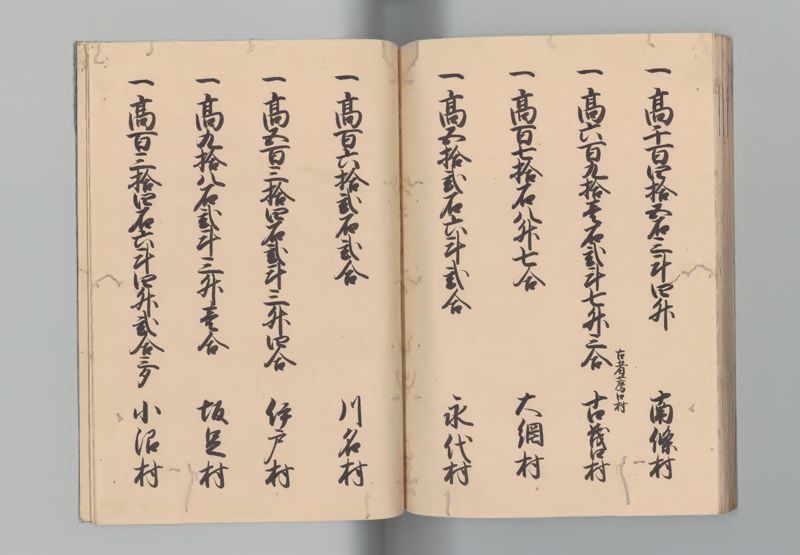 一高千百四拾五石三斗四升 南條村
一高六百九拾壱石弐斗七升三合 古茂口村
古者磨口村
一高百七拾石八升七合 大網村
一高五拾弐石六斗弐合 永代村
一高百六拾弐石弐合 川名村
一高五百三拾四石弐斗三升四合 伊戸村
一高九拾八石弐斗三升壱合 坂足村
一高百三拾四石六斗四升弐合三夕 小沼村